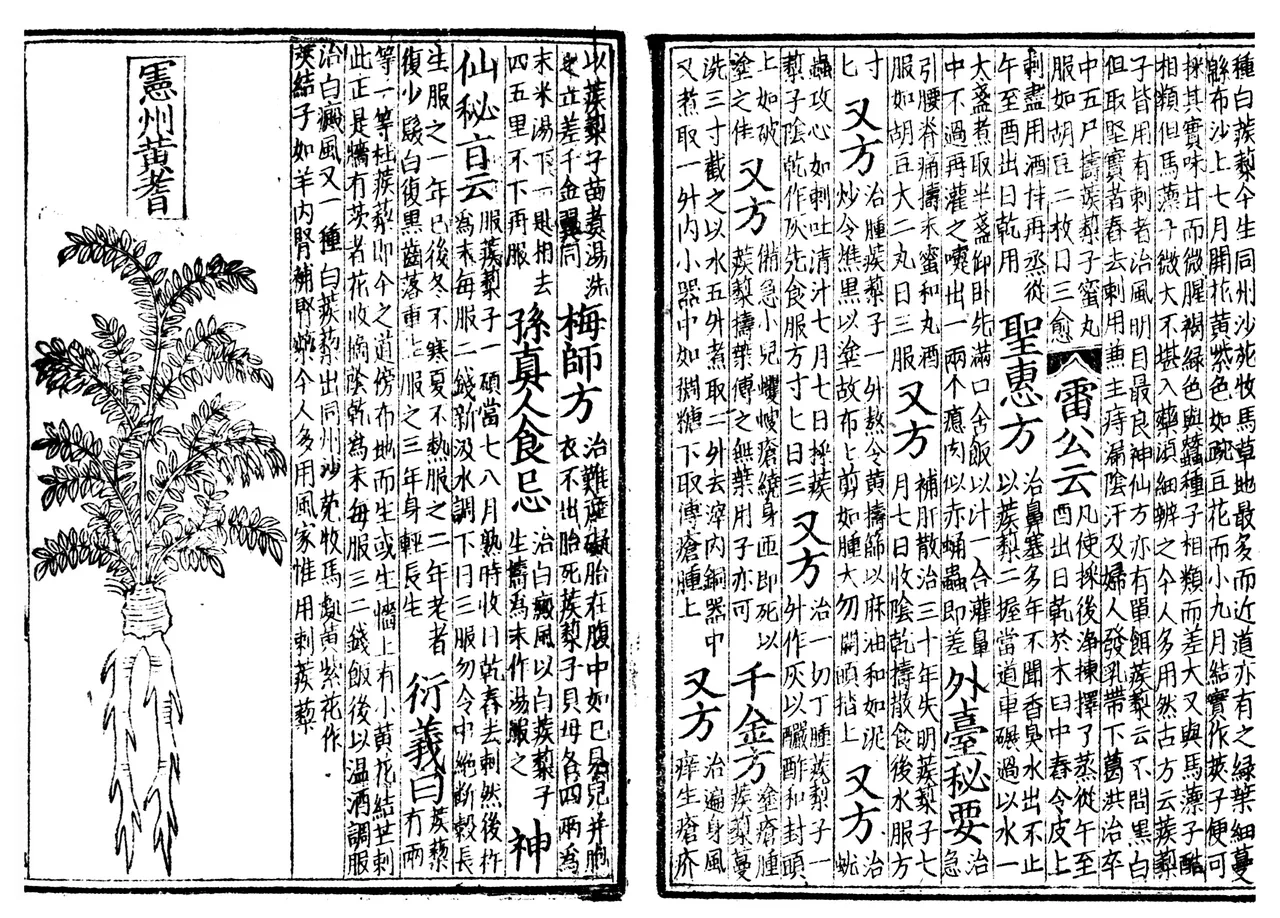 種白蒺藜今生同州沙苑牧馬草地最多而近道亦有之綠葉細蔓
緜布沙上七月開花黃紫色如豌豆花而小九月結實作莢子便可
採其實味甘而微腥褐綠色與蠶種子相類而差大又與馬薸子酷
相類但馬薸子微大不堪入藥須細辨之今人多用然古方云蒺藜
子皆用有刺者治風明目最良神仙方亦有單餌蒺藜云不問黑白
但取堅實者舂去刺用兼主痔漏陰汗及婦人發乳帶下葛洪治卒
中五尸擣蒺藜子蜜丸服如胡豆二枚日三愈 雷公云 凡使採後淨揀擇了蒸從午至酉出日乾於木臼中舂令皮上
刺盡用酒拌再蒸從午至酉出日乾用 聖惠方 治鼻塞多年不聞香臭水出不止以蒺藜二握當道車碾過以水一
大盞煮取半盞仰卧先滿口含飯以汁一合灌鼻中不過再灌之嚏出一兩个瘜肉似赤蛹蟲即差 外臺秘要 治急
引腰脊痛擣末蜜和丸酒服如胡豆大二丸日三服 又方 補肝散治三十年失明蒺藜子七月七日收陰乾擣散食後水服方
寸匕 又方 治腫蒺藜子一升熬令黃擣篩以麻油和如泥炒令燋黑以塗故布上剪如腫大勿開頭搨上 又方 治蚘
蟲攻心如刺吐清汁七月七日採蒺藜子陰乾作灰先食服方寸匕日三 又方 治一切丁腫蒺藜子一升作灰以釅酢和封頭
上如破塗之佳 又方 備急小兒蠼螋瘡繞身匝即死以蒺藜擣葉傅之無葉用子亦可 千金方 塗瘡腫蒺藜蔓
洗三寸截之以水五升煮取二升去滓内銅器中又煮取一升内小器中如稠糖下取傅瘡腫上 又方 治遍身風痒生瘡疥
以蒺藜子苗煮湯洗之立差千金翼同 梅師方 治難產礙胎在腹中如已見兒并胞衣不出胎死蒺藜子貝母各四兩為
末米湯下一匙相去四五里不下再服 孫真人食忌 治白癜風以白蒺藜子生擣為末作湯服之 神
仙秘旨云 服蒺藜子一碩當七八月熟時收日乾舂去刺然後杵為末每服二錢新汲水調下日三服勿令中絕斷穀長
生服之一年已後冬不寒夏不熱服之二年老者復少髮白復黑齒落重生服之三年身輕長生 衍義曰 蒺藜有兩
等一等杜蒺藜即今之道傍布地而生或生牆上有小黃花結芒刺
此正是牆有茨者花收摘陰乾為末每服三二錢飯後以温酒調服
治白癜風又一種白蒺藜出同州沙苑牧馬處黃紫花作
莢結子如羊内腎補腎藥今人多用風家惟用刺蒺藜
憲州黃耆